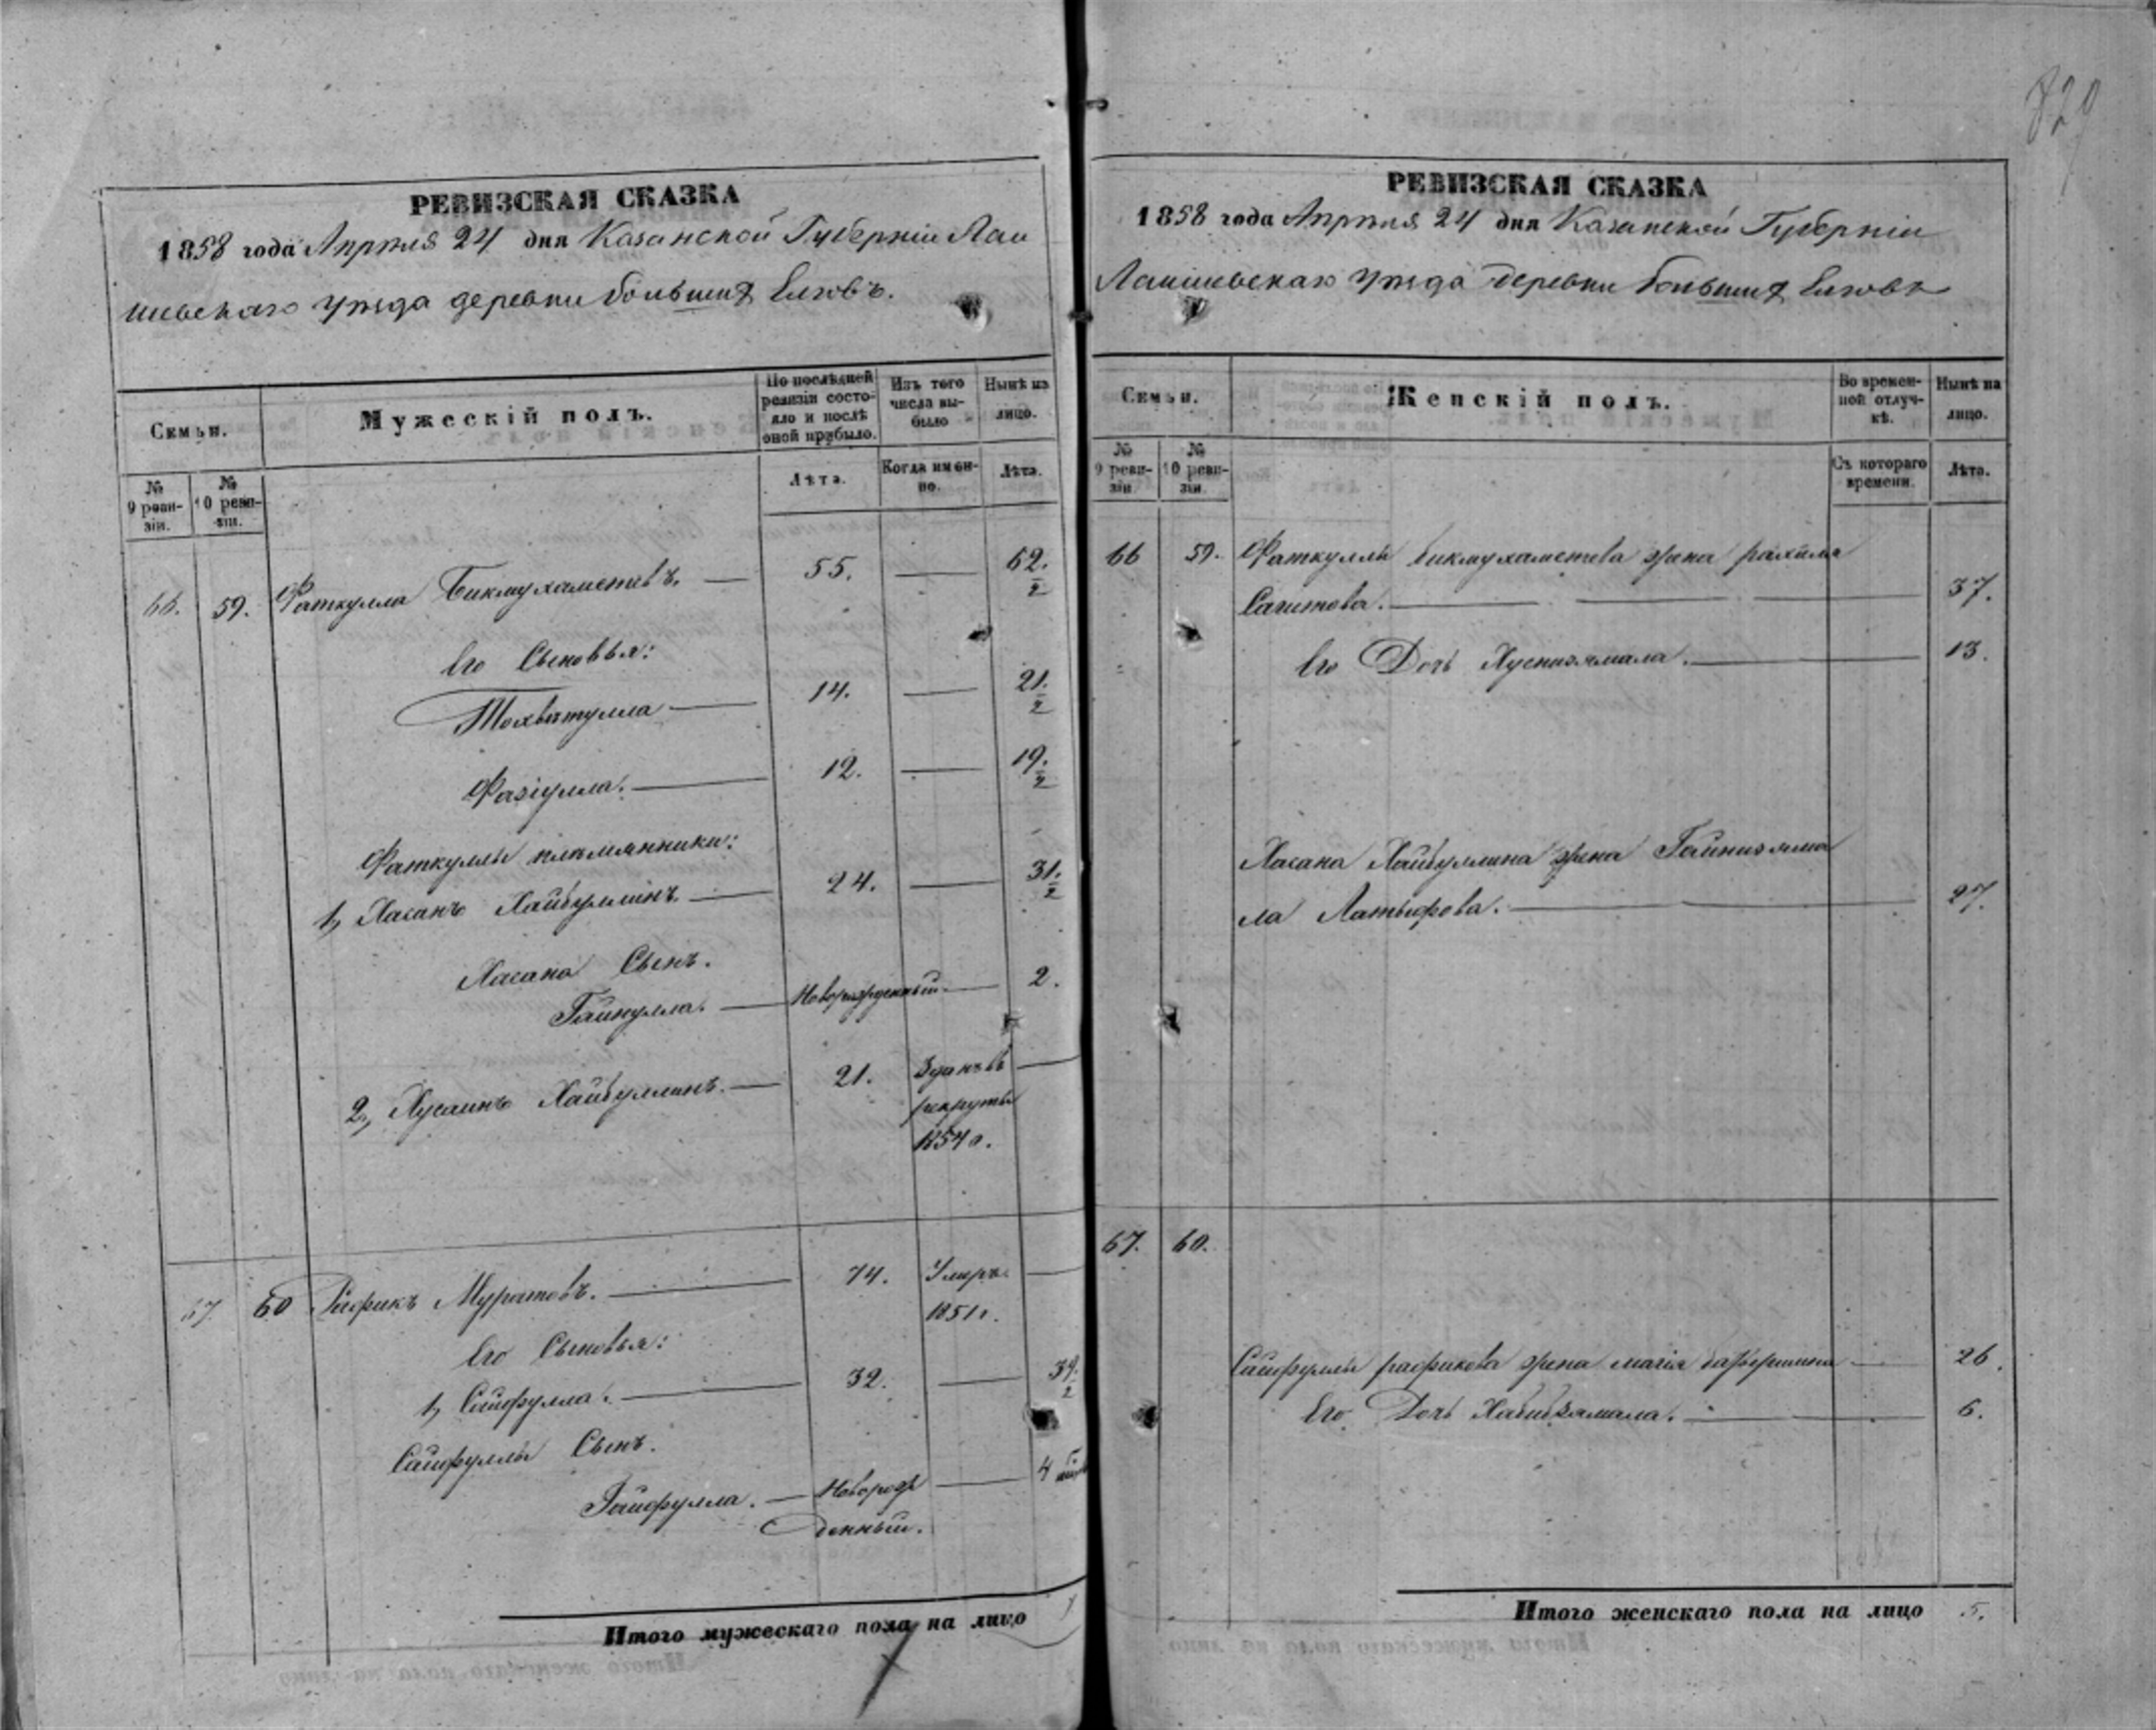 829
РЕВИЗСКАЯ СКАЗКА
1858 года Апрѣля 24 дня Казанской Губерніи Лаи
шевскаго уѣзда деревни большихъ Елговъ.
Семьи.
Мужескій полъ.
По послѣдней ревизіи состояло и послѣ оной прибыло.
Изъ того числа выбыло
Нынѣ на лицо.
№ 9 ревизіи.
№ 10 ревизіи.
Лѣта.
Когда именно.
Лѣта.
66. 59. Фаткулла Бикмухаметевъ. — 55. — 62. 1/2
Его Сыновья:
Тохватулла — 14. — 21. 1/2
Фазіулла. — 12. — 19. 1/2
Фаткуллы племянники:
1, Хасанъ Хайбуллинъ. — 24. — 31. 1/2
Хасана Сынъ.
Гайнулла. — Новорожденный. — 2.
2, Хусаинъ Хайбуллинъ. — 21. Зданъ въ —
рекруты
1854 г.
67 60 Рафикъ Муратовъ. — 74. Умеръ —
1851 г.
Его Сыновья:
1, Сайфулла. — 32. — 39. 1/2
Сайфуллы Сынъ.
Гайфулла. — Новорож — 4
денный.
Итого мужескаго пола на лицо 7
РЕВИЗСКАЯ СКАЗКА
1858 года Апрѣля 24 дня Казанской Губерніи
Лаишевскаго уѣзда деревни большихъ Елговъ
Семьи.
Женскій полъ.
Во временной отлучкѣ.
Нынѣ на лицо.
№ 9 ревизіи.
№ 10 ревизіи.
Съ котораго времени.
Лѣта.
66 59. Фаткуллы бикмухаметева жена рахима
Сагитова. — 37.
Его Дочь Хуснизямала. — 13.
Хасана Хайбуллина жена Гайнизяма
ла Латыфова. — 27.
67. 60.
Сайфуллы рафикова жена магія — 26.
Его Дочь Хабибзямала. — 6.
Итого женскаго пола на лицо 5.